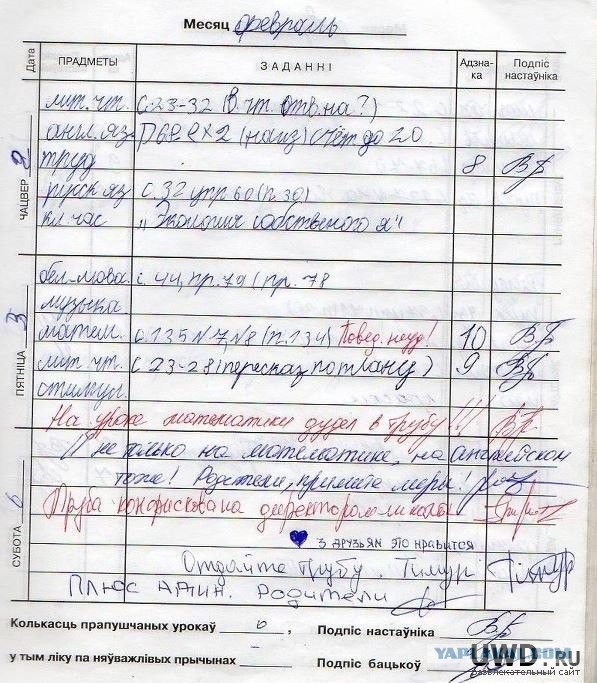 Месяц февраль
Дата ПРАДМЕТЫ ЗАДАННІ Адзна-ка Подпіс настаўніка
ЧАЦВЕР
лит. чт. с. 23-32 (В. чт. отв. на ?)
англ. яз. (наиз) счёт до 20
труд 8
русск. яз с. 32 упр 60 (п. 30)
кл. час „Экология собственого я"
ПЯТНІЦА
бел. мова. с. 44, пр. 79 (пр. 78
музыка.
матем. с. 135 №7, №8 (п. 134) Повед. неуд! 10
лит. чт. с 23-28 (пересказ по плану) 9
стимул.
На уроке математики дудел в трубу!!!
СУБОТА 6
И не только на математике, на английском
тоже! Родители, примите меры!
Труба конфискована директором школы
3 друзьям это нравится
Отдайте трубу. Тимур Тимур
Плюс адин. Родители
Колькасць прапушчаных урокаў 6, Подпіс настаўніка
у тым ліку па няўважлівых прычынах - Подпіс бацькоў
UWD.RU
Развлекательный сайт